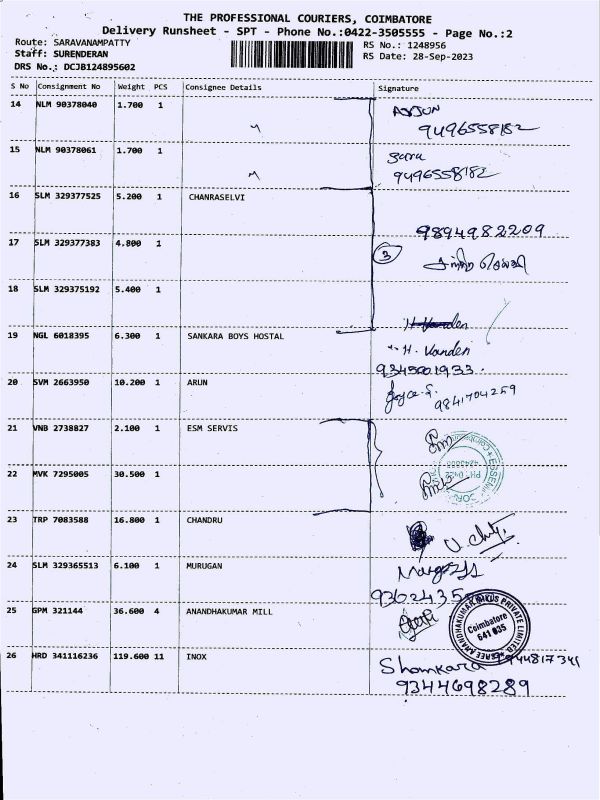 THE PROFESSIONAL COURIERS, COIMBATORE
Delivery Runsheet - SPT - Phone No.:0422-3505555 - Page No.:2
Route: SARAVANAMPATTY RS No.: 1248956
Staff: SURENDERAN RS Date: 28-Sep-2023
DRS No.: DCJB124895602
S No Consignment No Weight PCS Consignee Details Signature
14 NLM 90378040 1.700 1 ARJUN
9496558182
15 NLM 90378061 1.700 1 Sara
9496558182
16 SLM 329377525 5.200 1 CHANRASELVI
9894982209
17 SLM 329377383 4.800 1 3
18 SLM 329375192 5.400 1
19 NGL 6018395 6.300 1 SANKARA BOYS HOSTAL H. Vanden
9345001933.
20 SVM 2663950 10.200 1 ARUN Joyce.S.
9841704259
21 VNB 2738827 2.100 1 ESM SERVIS
22 MVK 7295005 30.500 1
23 TRP 7083588 16.800 1 CHANDRU
24 SLM 329365513 6.100 1 MURUGAN
25 GPM 321144 36.600 4 ANANDHAKUMAR MILL
PRIVATE LIMITED
Coimbatore
641 035
26 HRD 341116236 119.600 11 INOX Shamkara
9344698289